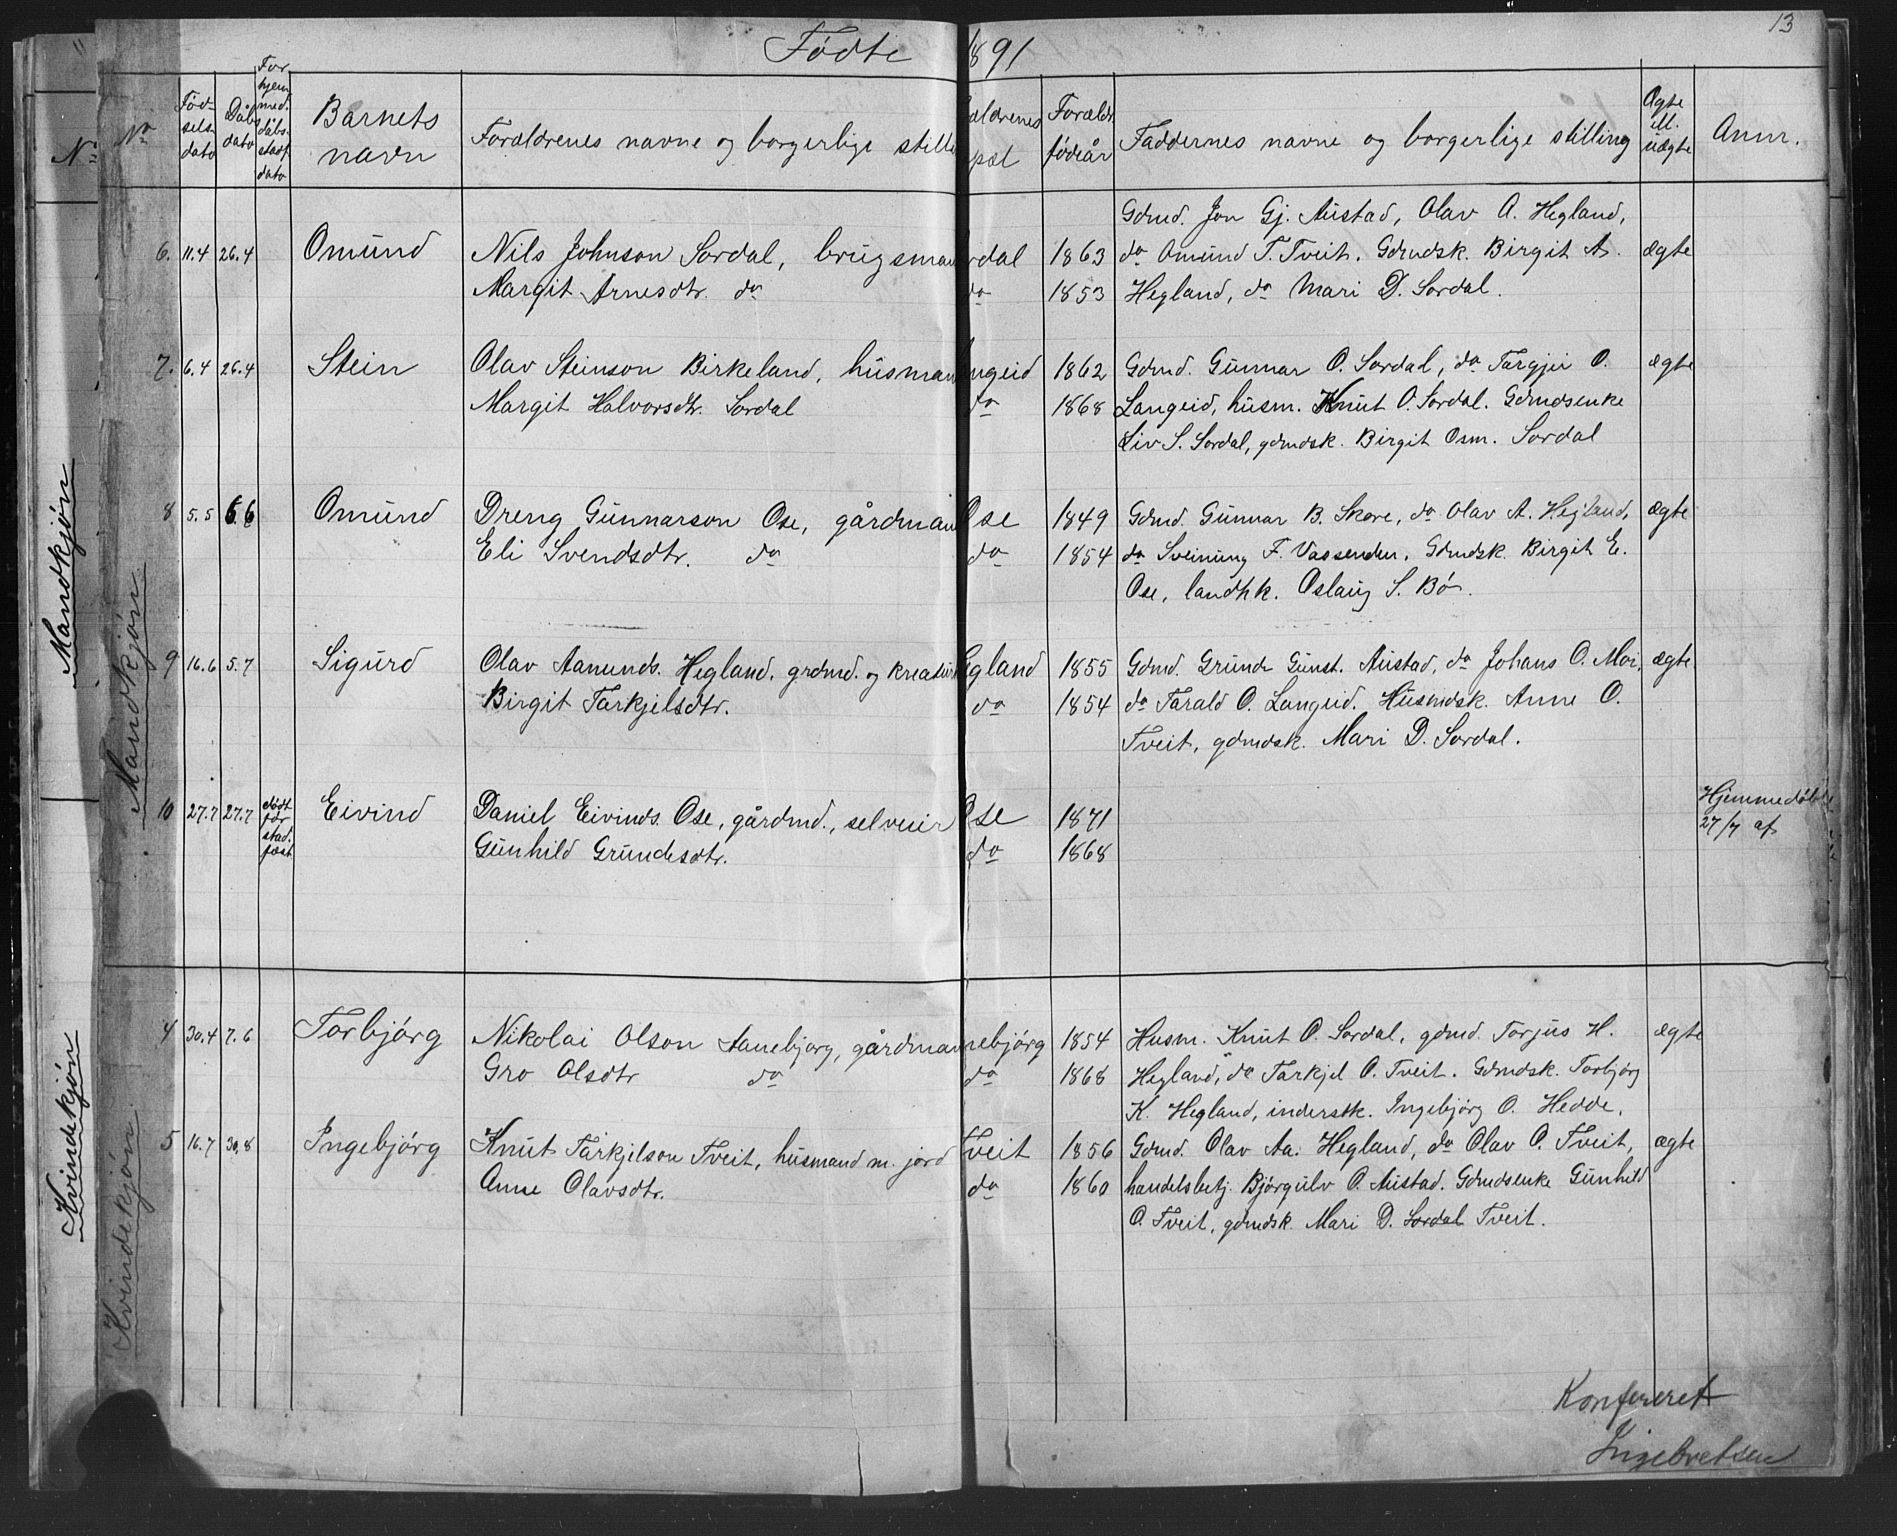 13
Fødte 1891
No
Fød-
sels
dato
Dåbs
dato
For
hjem
med.
dåbs
stadf.
dato
Barnets
navn
Forældrenes navne og borgerlige stilli
ældrenes
pæl
Forældr.
fødeår
Faddernes navne og borgerlige stilling
Ægte
ell.
uægte
Anm.
Mandkjøn
Gdmd. Jon Gj. Austad, Olav A. Hegland,
6. 11.4 26.4 Omund Nils Johnson Sordal, brugsman rdal 1863 do Omund T. Tveit. Gdmdsk. Birgit A. ægte
Margit Arnesdtr. do do 1853 Hegland, do Mari D. Sordal.
7. 6.4 26.4 Stein Olav Steinson Birkeland, husman ngeid 1862 Gdmd. Gunnar O. Sordal, do Targjei O. ægte
Margit Halvorsdtr. Sordal do 1868 Langeid, husm. Knut O. Sordal. Gdmdsenke
Liv S. Sordal, gdmdsk. Birgit Osm. Sordal
8 5.5 6.6 Omund Dreng Gunnarson Ose, gårdman Ose 1849 Gdmd. Gunnar B. Skore, do Olav A. Hegland, ægte
Eli Svendsdtr. do do 1854 do Sveinung F. Vassenden. Gdmdsk. Birgit E.
Ose, landhk. Oslaug S. Bø.
9 16.6 5.7 Sigurd Olav Aamunds. Hegland, grdmd. og kreatur egland 1855 Gdmd. Grunde Gunst. Austad, do Johans O. Moi, ægte
Birgit Tarkjelsdtr. do 1854 do Tarald O. Langeid. Husmdsk. Anne O.
Tveit, gdmdsk. Mari D. Sordal.
10 27.7 27.7 født
før
stad.
fæst Eivind Daniel Eivinds. Ose, gårdmd., selveier Ose 1871 Hjemmedøbt
27/7 af
Gunhild Grundesdtr. do 1868
Kvindekjøn
4 30.4 7.6 Torbjórg Nikolai Olson Aanebjorg, gårdman nebjórg 1854 Husm. Knut O. Sordal, gdmd. Torjus H. ægte
Gro Olsdtr do do 1868 Hegland, do Tarkjel O. Tveit. Gdmdsk. Torbjórg
K. Hegland, inderstk. Ingebjórg O. Hedde.
5 16.7 30.8 Ingebjórg Knut Tarkjelson Tveit, husmand m. jord Tveit 1856 Gdmd. Olav Aa. Hegland, do Olav O. Tveit, ægte
Anne Olavsdtr. do 1860 handelsbetj. Bjórgulv O. Austad. Gdmdsenke Gunhild
O. Tveit, gdmdsk. Mari D. Sordal Tveit.
Konfereret
Ingebretsen
No
Mandkjøn
Kvindekjøn